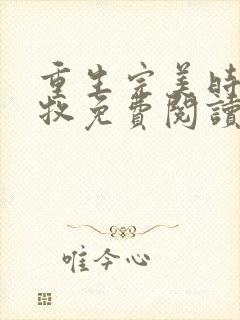 重生完美時
牧免費閱讀
唯今心